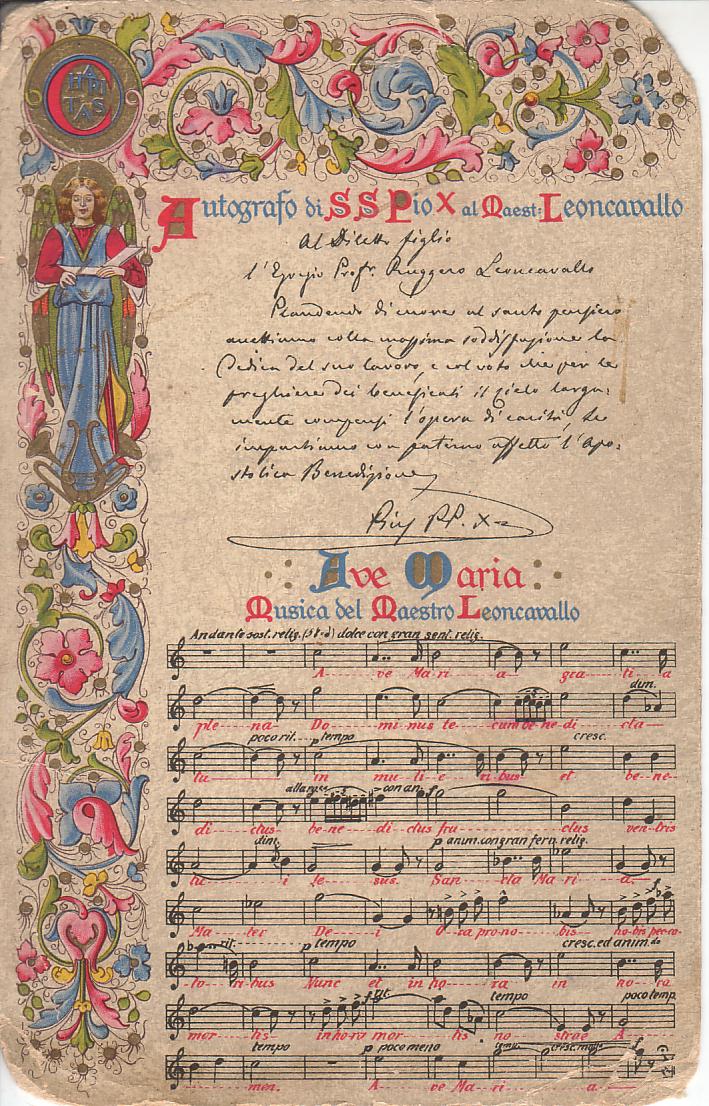 CHARITAS
Autografo di S S Pio X al Maest: Leoncavallo
Al Diletto figlio
l'Egregio Prof. Ruggero Leoncavallo
Plaudendo di cuore al santo pensiero
accettiamo colla massima soddisfazione la
Dedica del suo lavoro, e col voto che per le
preghiere dei beneficati il Cielo larga-
mente compensi l'opera di carità, Le
impartiamo con paterno affetto l'Apo-
stolica Benedizione
Pius PP. X
Ave Maria
Musica del Maestro Leoncavallo
Andante sost. relig. dolce con gran sent. relig.
A---- ve Ma-ri---- a---- gra--- ti--- a
dim.
ple--- na--- Do---- mi-nus te---- cum be-ne-di--- cta---
poco rit.... p tempo cresc.
tu---- in---- mu-li-e--- ri-bus et---- be-ne-
allarg. con an. f
di--- ctus- be-ne---di-ctus fru---- ctus ven-tris
dim. p anim. con gran ferv. relig.
tu---- i Je--- sus. San--- cta Ma-ri--- a---
f
Ma--- ter De---- i O-ra pro-no--- bis- no-bis pec-ca-
rit. p tempo cresc. ed anim.do
to---ri-bus Nunc et in ho---- ra in---- ho---ra
tempo poco temp.
mor--- tis---- in hora mor--- tis no---- strae A-----
tempo p poco meno cresc. molto f
men. A---- ve Ma---ri---- a----